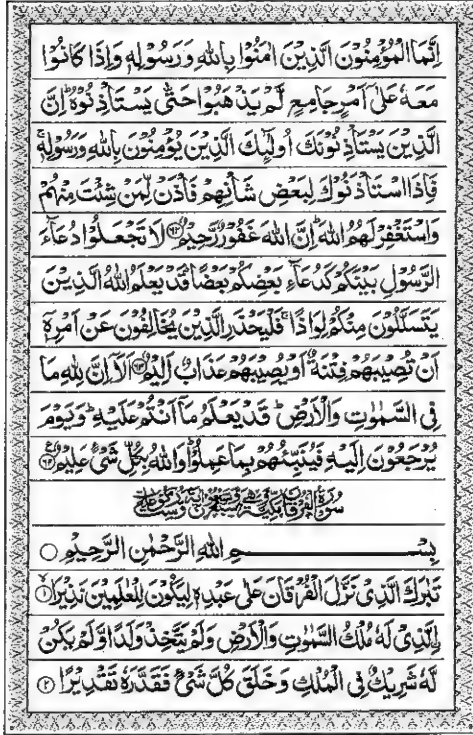 اِنَّمَا الْمُؤْمِنُوْنَ الَّذِيْنَ اٰمَنُوْا بِاللّٰهِ وَرَسُوْلِهٖ وَاِذَا كَانُوْا
مَعَهٗ عَلٰٓى اَمْرٍ جَامِعٍ لَّمْ يَذْهَبُوْا حَتّٰى يَسْتَاْذِنُوْهُ ؕ اِنَّ
الَّذِيْنَ يَسْتَاْذِنُوْنَكَ اُولٰٓئِكَ الَّذِيْنَ يُؤْمِنُوْنَ بِاللّٰهِ وَرَسُوْلِهٖ ۚ
فَاِذَا اسْتَاْذَنُوْكَ لِبَعْضِ شَاْنِهِمْ فَاْذَنْ لِّمَنْ شِئْتَ مِنْهُمْ
وَاسْتَغْفِرْ لَهُمُ اللّٰهَ ؕ اِنَّ اللّٰهَ غَفُوْرٌ رَّحِيْمٌ ﴿۶۲﴾ لَا تَجْعَلُوْا دُعَآءَ
الرَّسُوْلِ بَيْنَكُمْ كَدُعَآءِ بَعْضِكُمْ بَعْضًا ؕ قَدْ يَعْلَمُ اللّٰهُ الَّذِيْنَ
يَتَسَلَّلُوْنَ مِنْكُمْ لِوَاذًا ۚ فَلْيَحْذَرِ الَّذِيْنَ يُخَالِفُوْنَ عَنْ اَمْرِهٖٓ
اَنْ تُصِيْبَهُمْ فِتْنَةٌ اَوْ يُصِيْبَهُمْ عَذَابٌ اَلِيْمٌ ﴿۶۳﴾ اَلَاۤ اِنَّ لِلّٰهِ مَا
فِى السَّمٰوٰتِ وَالْاَرْضِ ؕ قَدْ يَعْلَمُ مَاۤ اَنْتُمْ عَلَيْهِ ؕ وَيَوْمَ
يُرْجَعُوْنَ اِلَيْهِ فَيُنَبِّئُهُمْ بِمَا عَمِلُوْا ؕ وَاللّٰهُ بِكُلِّ شَىْءٍ عَلِيْمٌ ﴿۶۴﴾
سُوْرَةُ الْفُرْقَانِ مَكِّيَّةٌ
بِسْمِ اللّٰهِ الرَّحْمٰنِ الرَّحِيْمِ
تَبٰرَكَ الَّذِىْ نَزَّلَ الْفُرْقَانَ عَلٰى عَبْدِهٖ لِيَكُوْنَ لِلْعٰلَمِيْنَ نَذِيْرًا ﴿۱﴾
اِلَّذِىْ لَهٗ مُلْكُ السَّمٰوٰتِ وَالْاَرْضِ وَلَمْ يَتَّخِذْ وَلَدًا وَّلَمْ يَكُنْ
لَّهٗ شَرِيْكٌ فِى الْمُلْكِ وَخَلَقَ كُلَّ شَىْءٍ فَقَدَّرَهٗ تَقْدِيْرًا ﴿۲﴾